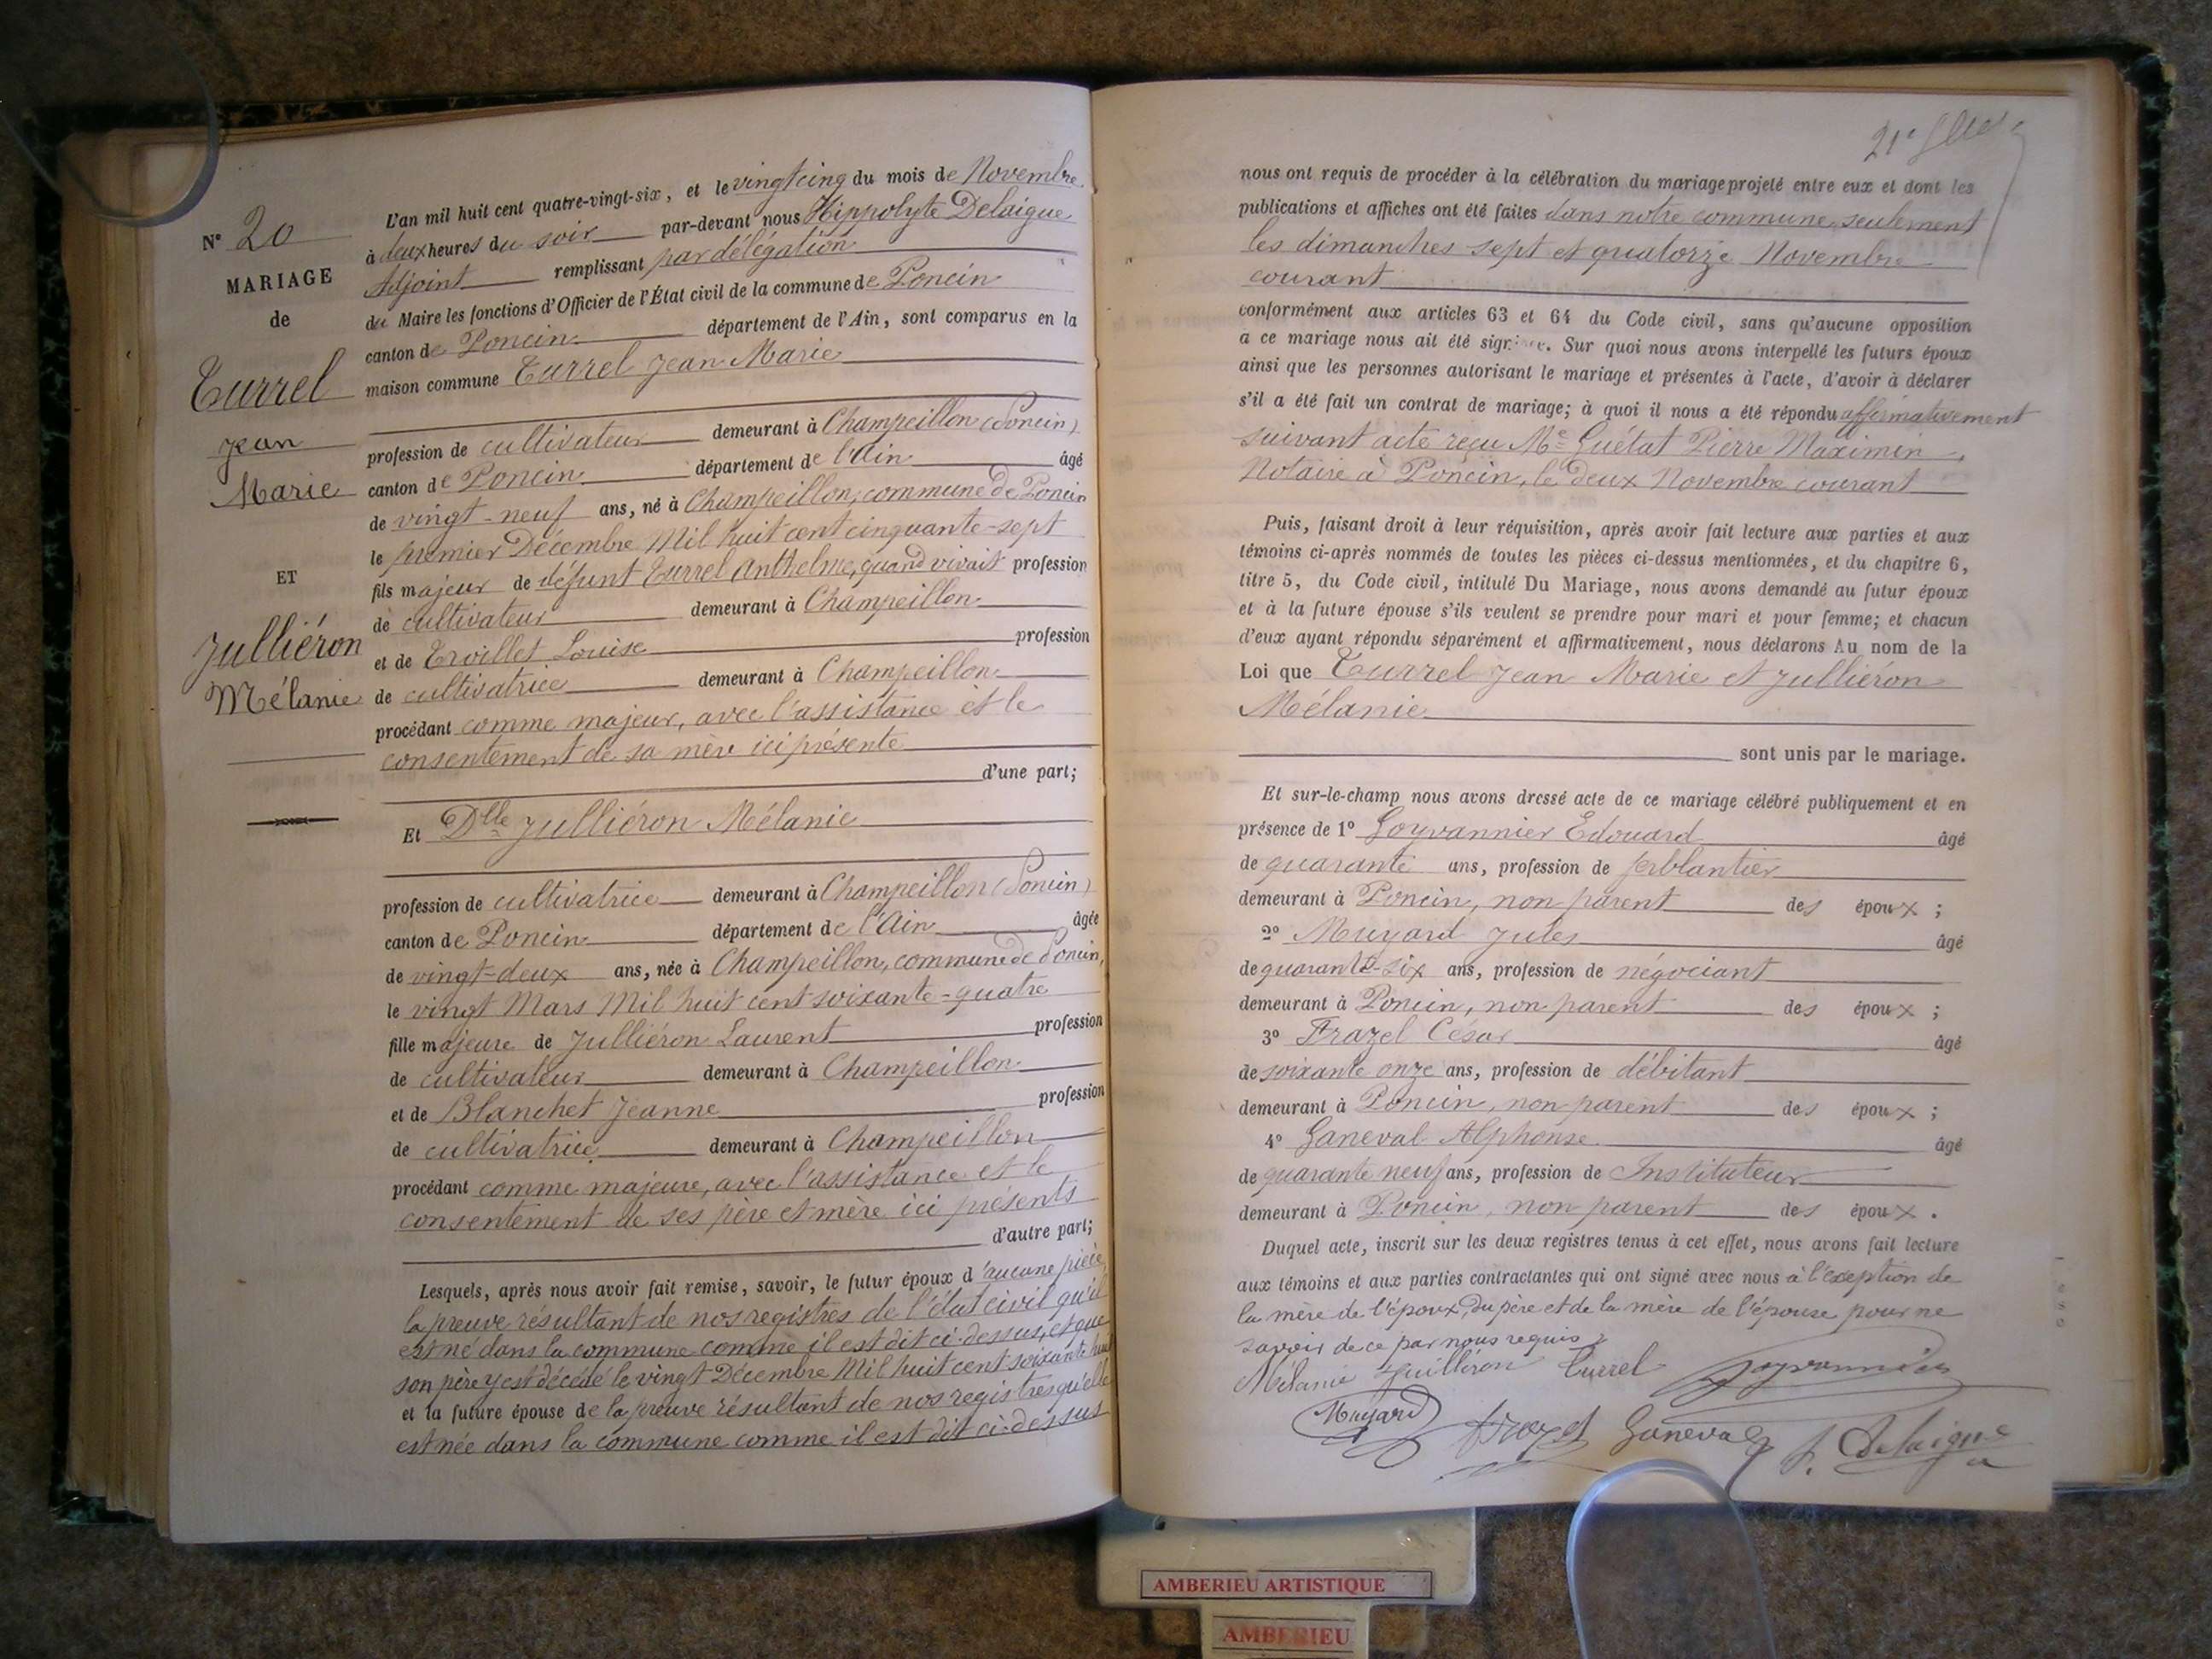 N° 20
MARIAGE
de
Turrel
Jean
Marie
ET
Julliéron
Mélanie
L'an mil huit cent quatre-vingt-six, et le vingt cinq du mois de Novembre
à deux heures du soir par-devant nous Hippolyte Delaigue
Adjoint remplissant par délégation
du Maire les fonctions d'Officier de l'État civil de la commune de Poncin
canton de Poncin département de l'Ain, sont comparus en la
maison commune Turrel Jean Marie
profession de cultivateur demeurant à Champeillon (Poncin)
canton de Poncin département de l'Ain âgé
de vingt-neuf ans, né à Champeillon, commune de Poncin
le premier Décembre Mil huit cent cinquante-sept
fils majeur de défunt Turrel Anthelme, quand vivait profession
de cultivateur demeurant à Champeillon
et de Trvillet Louise profession
de cultivatrice demeurant à Champeillon
procédant comme majeur, avec l'assistance et le
consentement de sa mère ici présente
d'une part;
Et Dlle Julliéron Mélanie
profession de cultivatrice demeurant à Champeillon (Poncin)
canton de Poncin département de l'Ain âgée
de vingt-deux ans, née à Champeillon, commune de Poncin,
le vingt Mars Mil huit cent soixante-quatre
fille majeure de Julliéron Laurent profession
de cultivateur demeurant à Champeillon
et de Blanchet Jeanne profession
de cultivatrice demeurant à Champeillon
procédant comme majeure, avec l'assistance et le
consentement de ses père et mère ici présents
d'autre part;
Lesquels, après nous avoir fait remise, savoir, le futur époux d'aucune pièce
la preuve résultant de nos registres de l'état civil qu'il
est né dans la commune comme il est dit ci-dessus, et que
son père y est décédé le vingt Décembre Mil huit cent soixante huit
et la future épouse de la preuve résultant de nos registres qu'elle
est née dans la commune comme il est dit ci-dessus
21e
nous ont requis de procéder à la célébration du mariage projeté entre eux et dont les
publications et affiches ont été faites dans notre commune, seulement
les dimanches sept et quatorze Novembre
courant
conformément aux articles 63 et 64 du Code civil, sans qu'aucune opposition
a ce mariage nous ait été signifiée. Sur quoi nous avons interpellé les futurs époux
ainsi que les personnes autorisant le mariage et présentes à l'acte, d'avoir à déclarer
s'il a été fait un contrat de mariage; à quoi il nous a été répondu affirmativement
suivant acte reçu Me Guétat Pierre Maximin,
Notaire à Poncin, le deux Novembre courant
Puis, faisant droit à leur réquisition, après avoir fait lecture aux parties et aux
témoins ci-après nommés de toutes les pièces ci-dessus mentionnées, et du chapitre 6,
titre 5, du Code civil, intitulé Du Mariage, nous avons demandé au futur époux
et à la future épouse s'ils veulent se prendre pour mari et pour femme; et chacun
d'eux ayant répondu séparément et affirmativement, nous déclarons Au nom de la
Loi que Turrel Jean Marie et Julliéron
Mélanie
sont unis par le mariage.
Et sur-le-champ nous avons dressé acte de ce mariage célébré publiquement et en
présence de 1° Goyvannier Edouard âgé
de quarante ans, profession de ferblantier
demeurant à Poncin, non parent des époux ;
2° Muyard Jules âgé
de quarante-six ans, profession de négociant
demeurant à Poncin, non parent des époux ;
3° Frazel César âgé
de soixante onze ans, profession de débitant
demeurant à Poncin, non parent des époux ;
4° Ganeval Alphonse âgé
de quarante neuf ans, profession de Instituteur
demeurant à Poncin, non parent des époux .
Duquel acte, inscrit sur les deux registres tenus à cet effet, nous avons fait lecture
aux témoins et aux parties contractantes qui ont signé avec nous à l'exeption de
la mère de l'époux, du père et de la mère de l'épouse pour ne
savoir de ce par nous requis
Mélanie Juilléron Turrel Goyvannier
Muyard Frazel Ganeval H. Delaigue
AMBERIEU ARTISTIQUE
AMBERIEU